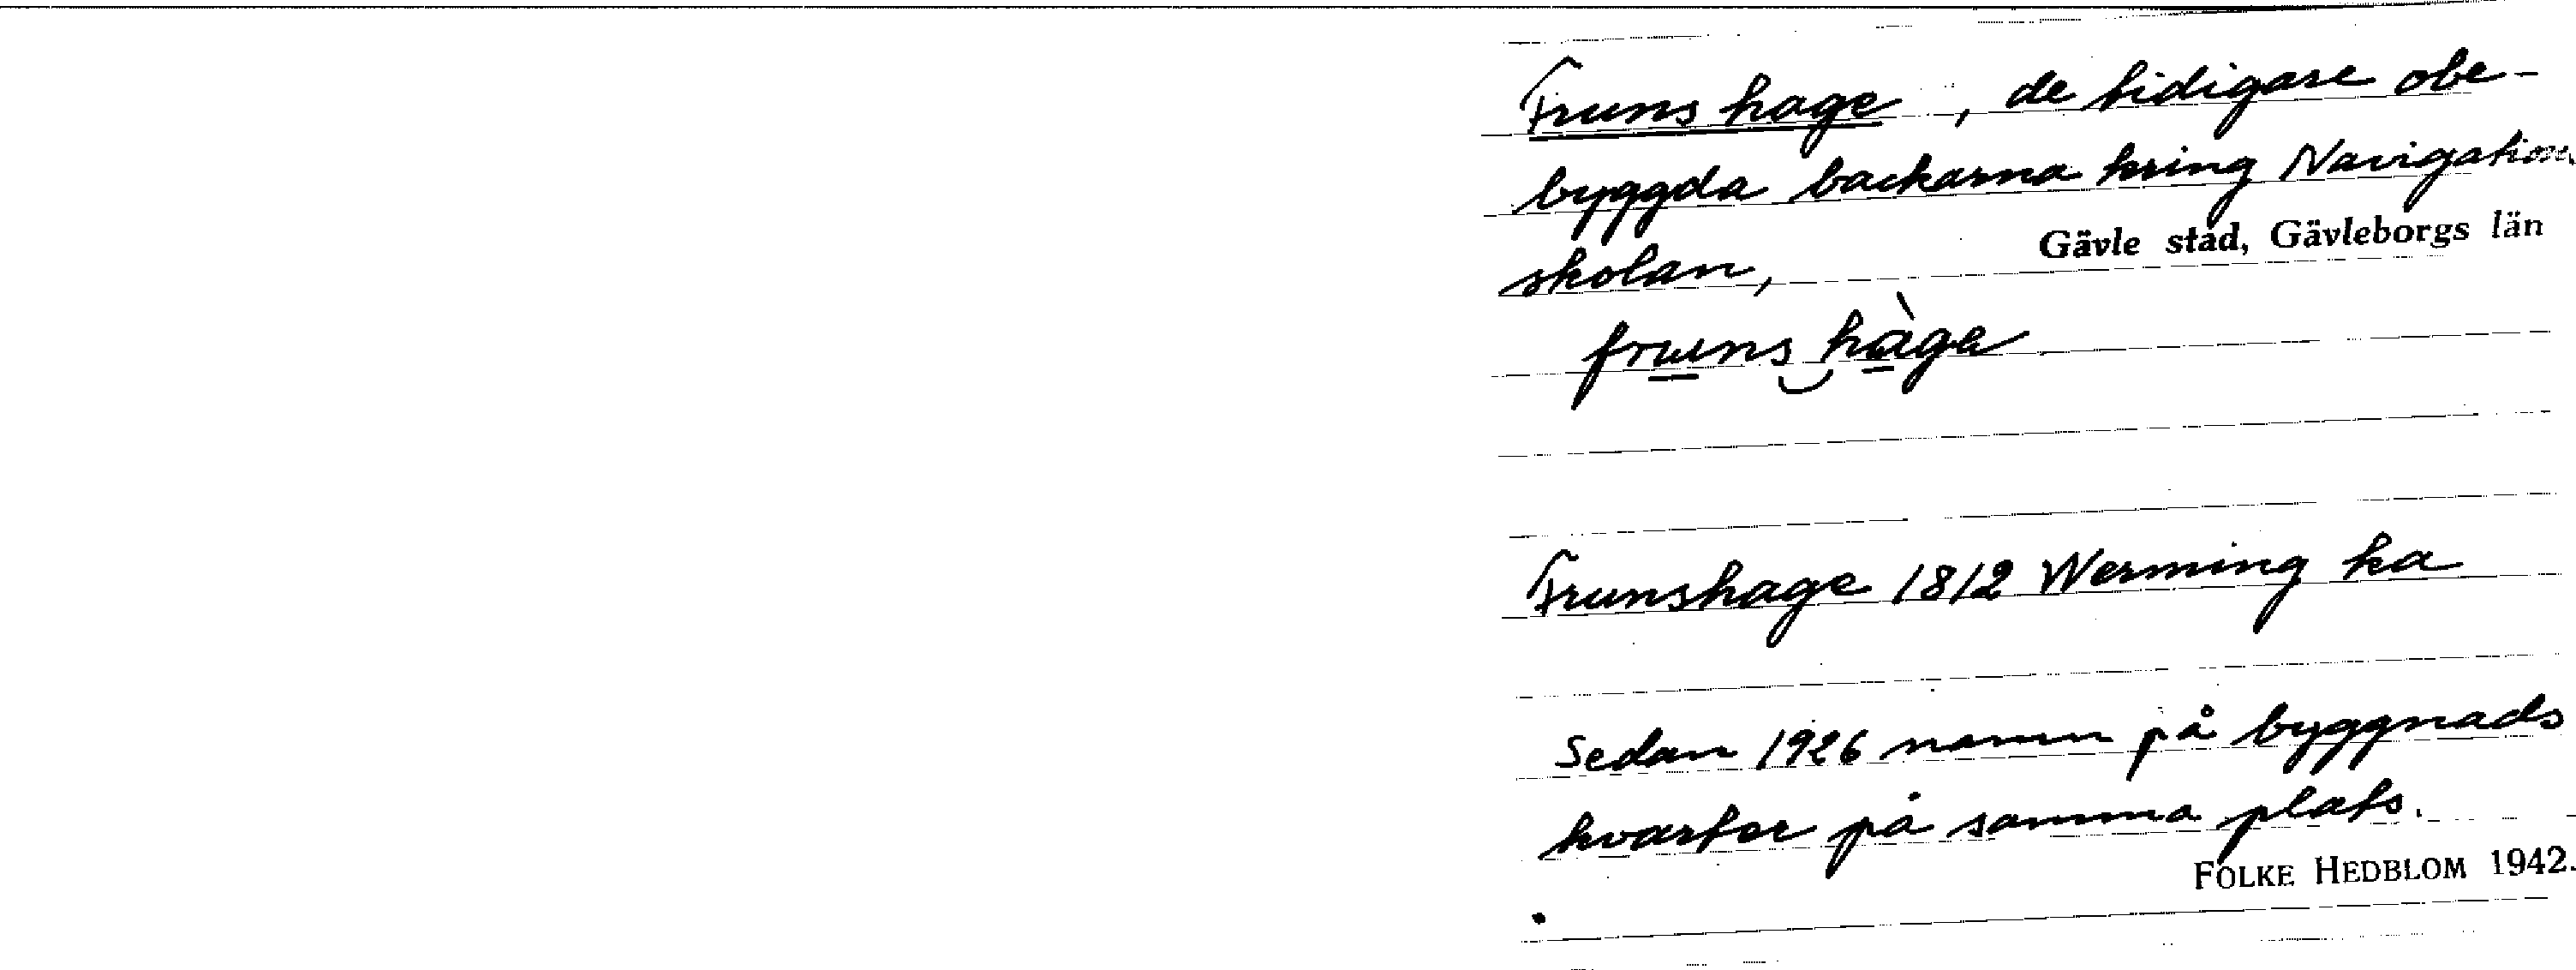 Fruns hage, de tidigare obe-
byggda backarna kring Navigation
skolan,
Gävle stad, Gävleborgs län
fruns hàga
Frunshage 1812 Werming ka
Sedan 1926 namn på byggnads
kvarter på samma plats.
FOLKE HEDBLOM 1942.